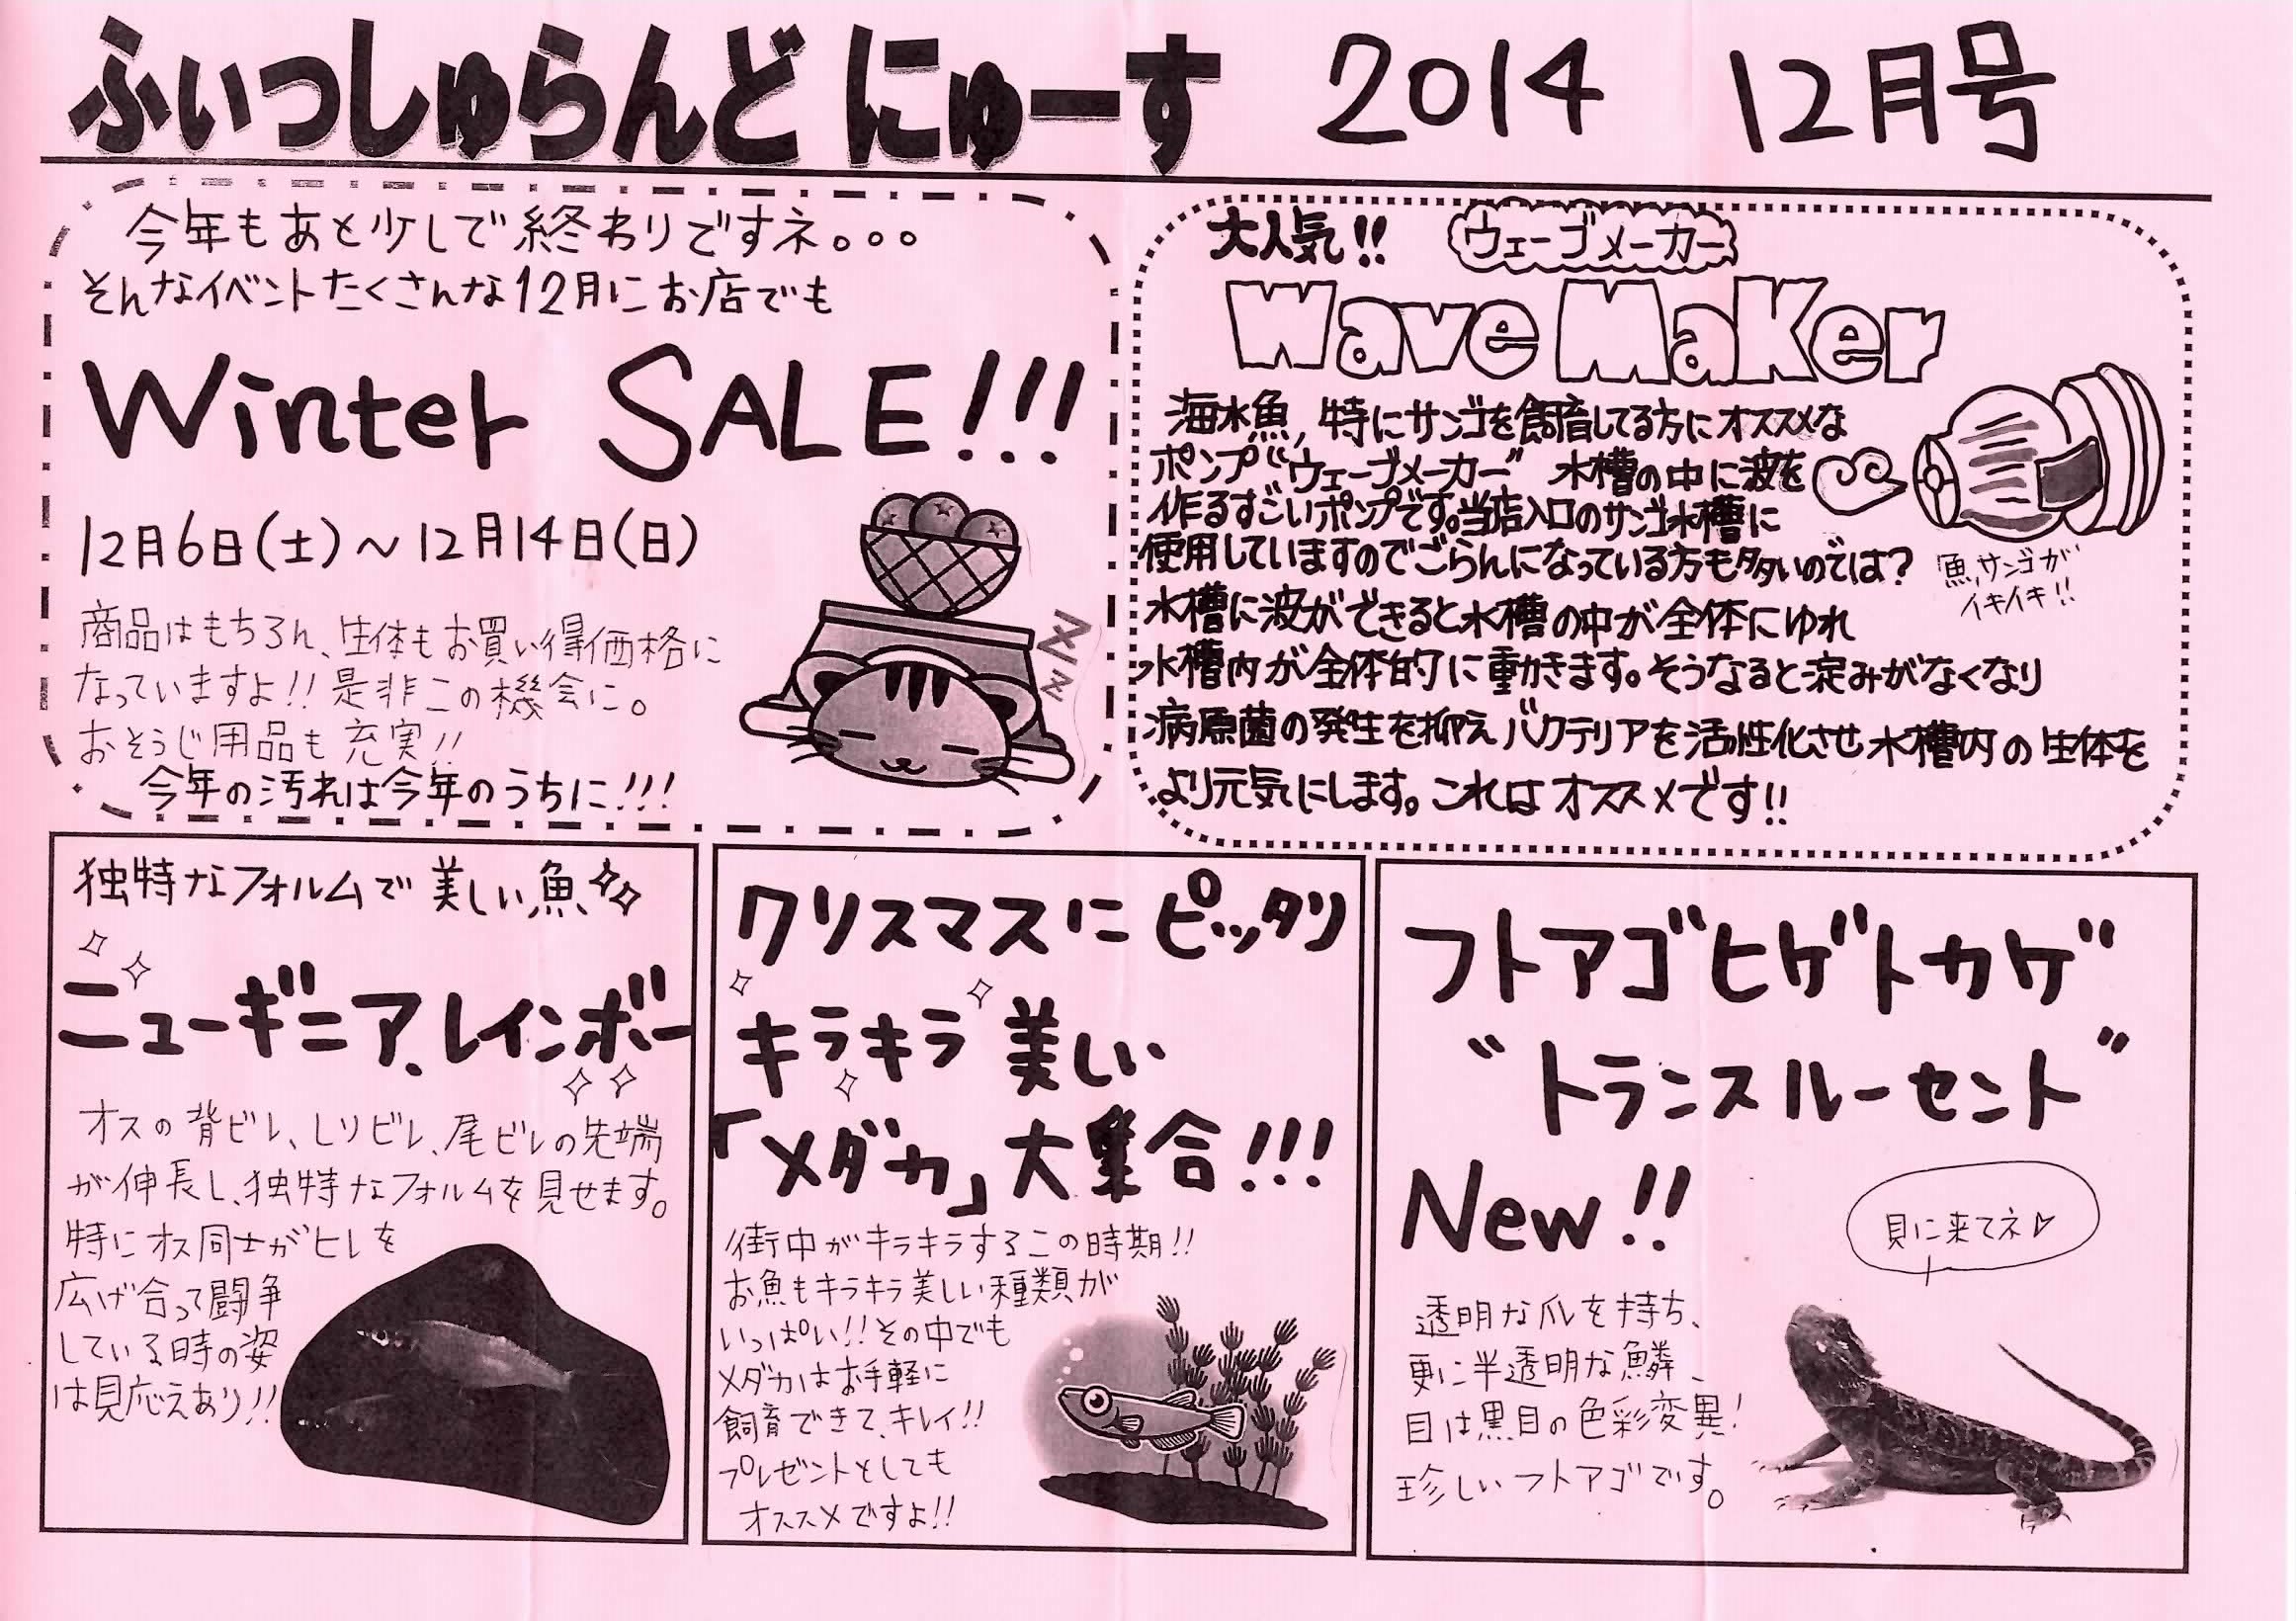 ふぃっしゅらんど にゅーす 2014 12月号
今年もあと少しで終わりですネ。。。
そんなイベントたくさんな12月にお店でも
Winter SALE!!!
12月6日(土)～12月14日(日)
商品はもちろん、生体もお買い得価格に
なっていますよ!! 是非この機会に。
おそうじ用品も充実!!
今年の汚れは今年のうちに!!!
ZZZ
大人気!! ウェーブメーカー
Wave Maker
海水魚,特にサンゴを飼育してる方にオススメな
ポンプ“ウェーブメーカー” 水槽の中に波を
作るすごいポンプです。当店入口のサンゴ水槽に
使用していますのでごらんになっている方も多いのでは?
水槽に波ができると水槽の中が全体にゆれ
水槽内が全体的に動きます。そうなると淀みがなくなり
病原菌の発生を抑えバクテリアを活性化させ水槽内の生体を
より元気にします。これはオススメです!!
魚,サンゴが
イキイキ!!
独特なフォルムで美しい魚
ニューギニア.レインボー
オスの背ビレ、しりビレ、尾ビレの先端
が伸長し、独特なフォルムを見せます。
特にオス同士がヒレを
広げ合って闘争
している時の姿
は見応えあり!!
クリスマスにピッタリ
キラキラ美しい
「メダカ」大集合!!!
街中がキラキラするこの時期!!
お魚もキラキラ美しい種類が
いっぱい!!その中でも
メダカはお手軽に
飼育できて、キレイ!!
プレゼントとしても
オススメですよ!!
フトアゴヒゲトカゲ
“トランスルーセント”
New!!
見に来てネ♪
透明な爪を持ち、
更に半透明な鱗、
目は黒目の色彩変異!
珍しいフトアゴです。